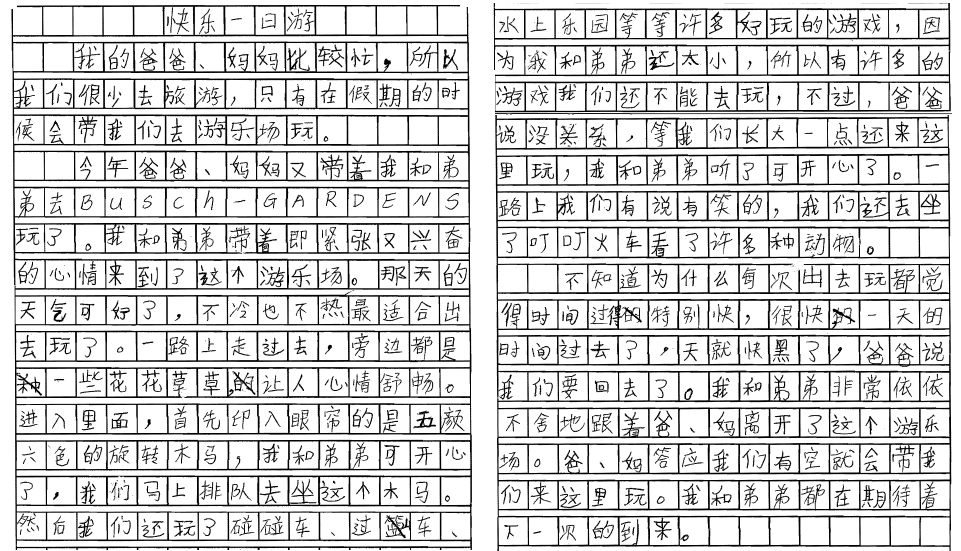 快乐一日游
我的爸爸、妈妈比较忙，所以
我们很少去旅游，只有在假期的时
候会带我们去游乐场玩。
今年爸爸、妈妈又带着我和弟
弟去Busch-GARDENS
玩了。我和弟弟带着即紧张又兴奋
的心情来到了这个游乐场。那天的
天气可好了，不冷也不热最适合出
去玩了。一路上走过去，旁边都是
一些花花草草，让人心情舒畅。
进入里面，首先印入眼帘的是五颜
六色的旋转木马，我和弟弟可开心
了，我们马上排队去坐这个木马。
然后我们还玩了碰碰车、过车、
水上乐园等等许多好玩的游戏，因
为我和弟弟还太小，所以有许多的
游戏我们还不能去玩，不过，爸爸
说没关系，等我们长大一点还来这
里玩，我和弟弟听了可开心了。一
路上我们有说有笑的，我们还去坐
了叮叮火车看了许多种动物。
不知道为什么每次出去玩都觉
得时间过得特别快，很快一天的
时间过去了，天就快黑了，爸爸说
我们要回去了。我和弟弟非常依依
不舍地跟着爸、妈离开了这个游乐
场。爸、妈答应我们有空就会带我
们来这里玩。我和弟弟都在期待着
下一次的到来。